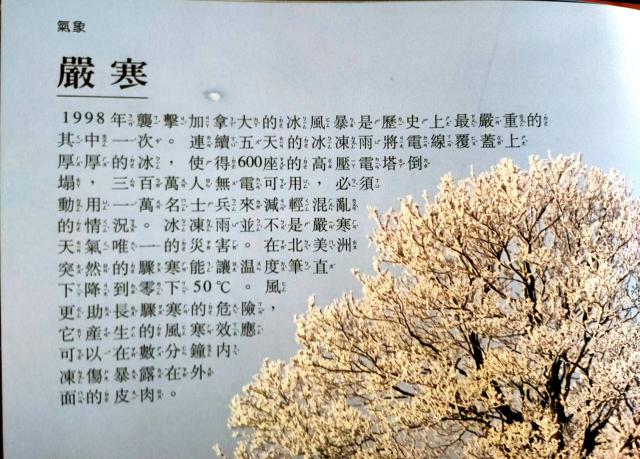 氣象
嚴寒
1998年襲擊加拿大的冰風暴是歷史上最嚴重的
其中一次。連續五天的冰凍雨將電線覆蓋上
厚厚的冰，使得600座的高壓電塔倒
塌，三百萬人無電可用，必須
動用一萬名士兵來減輕混亂
的情況。冰凍雨並不是嚴寒
天氣唯一的災害。在北美洲
突然的驟寒能讓溫度筆直
下降到零下50℃。風
更助長驟寒的危險，
它產生的風寒效應
可以在數分鐘內
凍傷暴露在外
面的皮肉。